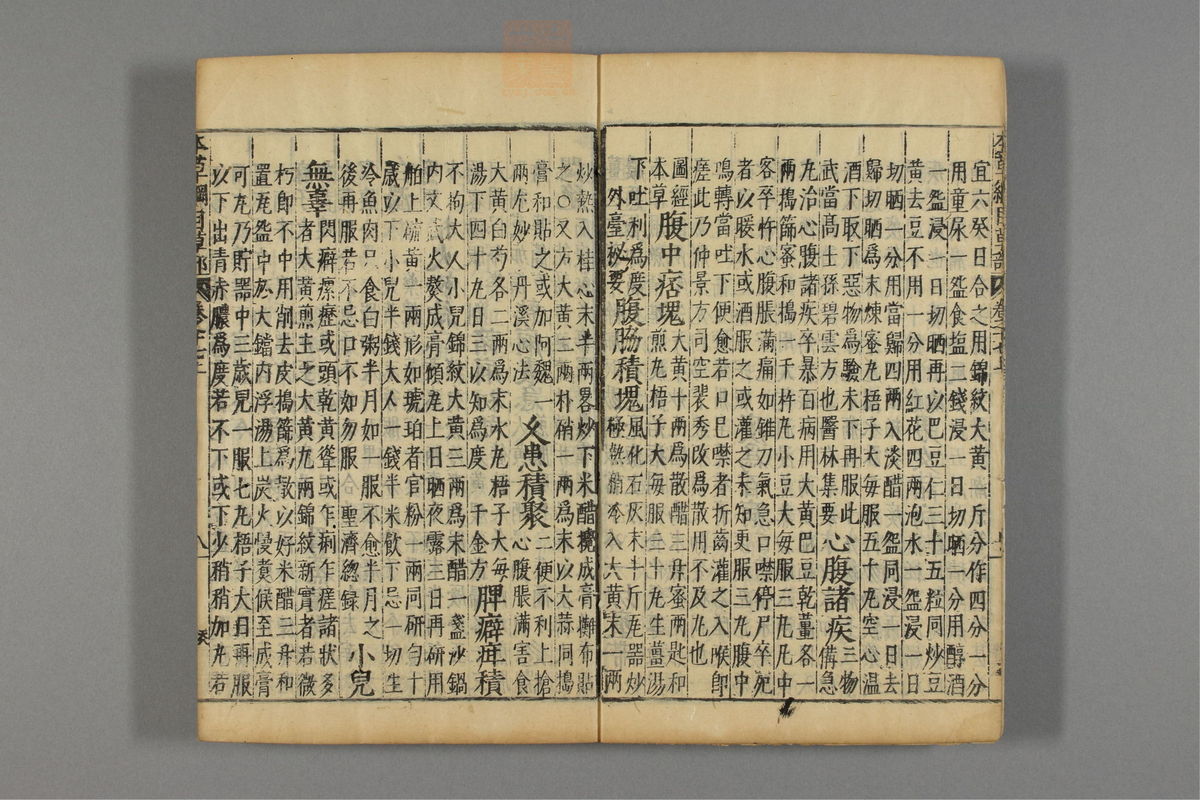 宜六癸日合之用錦紋大黃一斤分作四分一分
用童尿一盌食塩二錢浸一日切晒一分用醇酒
一盌浸一日切晒再以巴豆仁三十五粒同炒豆
黃去豆不用一分用紅花四兩泡水一盌浸一日
切晒一分用當歸四兩入淡醋一盌同浸一日去
歸切晒爲末煉蜜丸梧子大毎服五十丸空心温
酒下取下惡物爲驗未下再服此
武當髙士孫碧雲方也醫林集要 心腹諸疾 三物備急
丸治心腹諸疾卒暴百病用大黃巴豆乾薑各一
兩搗篩蜜和搗一千杵丸小豆大毎服三丸凡中
客卒忤心腹脹滿痛如錐刀氣急口噤停尸卒死
者以暖水或酒服之或灌之未知更服三丸腹中
鳴轉當吐下便愈若口巳噤者折齒灌之入喉卽
瘥此乃仲景方司空裴秀改爲散用不及丸也
圖經本草 腹中痞塊 大黃十兩爲散醋三升蜜兩匙和
煎丸梧子大毎服三十丸生薑湯
下吐利爲度
外臺秘要 腹脇積塊 風化石灰末半斤瓦器炒
極熱稍冷入大黃末一兩
炒熱入桂心末半兩畧炒下米醋攪成膏攤布貼
之○又方大黃二兩朴硝一兩爲末以大蒜同搗
膏和貼之或加阿魏一兩尤妙 丹溪心法 久患積聚 二便不利上搶
心腹脹滿害食
大黃白芍各二兩爲末水丸梧子大毎
湯下四十丸日三以知爲度 千金方 脾癖疳積
不拘大人小兒錦紋大黃三兩爲末醋一盞沙鍋
内文武火熬成膏傾瓦上日晒夜露三日再研用
舶上硫黃一兩形如琥珀者官粉一兩同研勻十
歲以下小兒半錢大人一錢半米飲下忌一切生
冷魚肉只食白粥半月如一服不愈半月之
後再服若不忌口不如勿服 聖濟總録 小兒
無辜 閃癖瘰癧或頭乾黃聳或乍痢乍瘥諸狀多
者大黃煎主之大黃九兩錦紋新實者若微
朽即不中用削去皮搗篩爲散以好米醋三升和
置瓦盌中於大鐺内浮湯上炭火慢煑候至成膏
可丸乃貯器中三歲兒一服七丸梧子大日再服
以下出青赤膿爲度若不下或下少稍稍加丸若